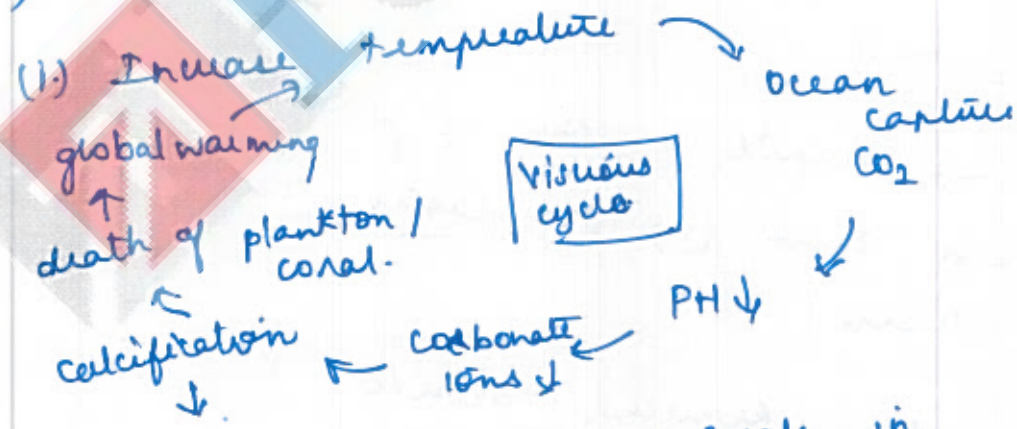 (1.) Increase tempreature
ocean
capture
CO2
global warming
visuous
cycle
death of plankton /
coral.
PH ↓
carbonate
ions ↓
calcification
↓
in